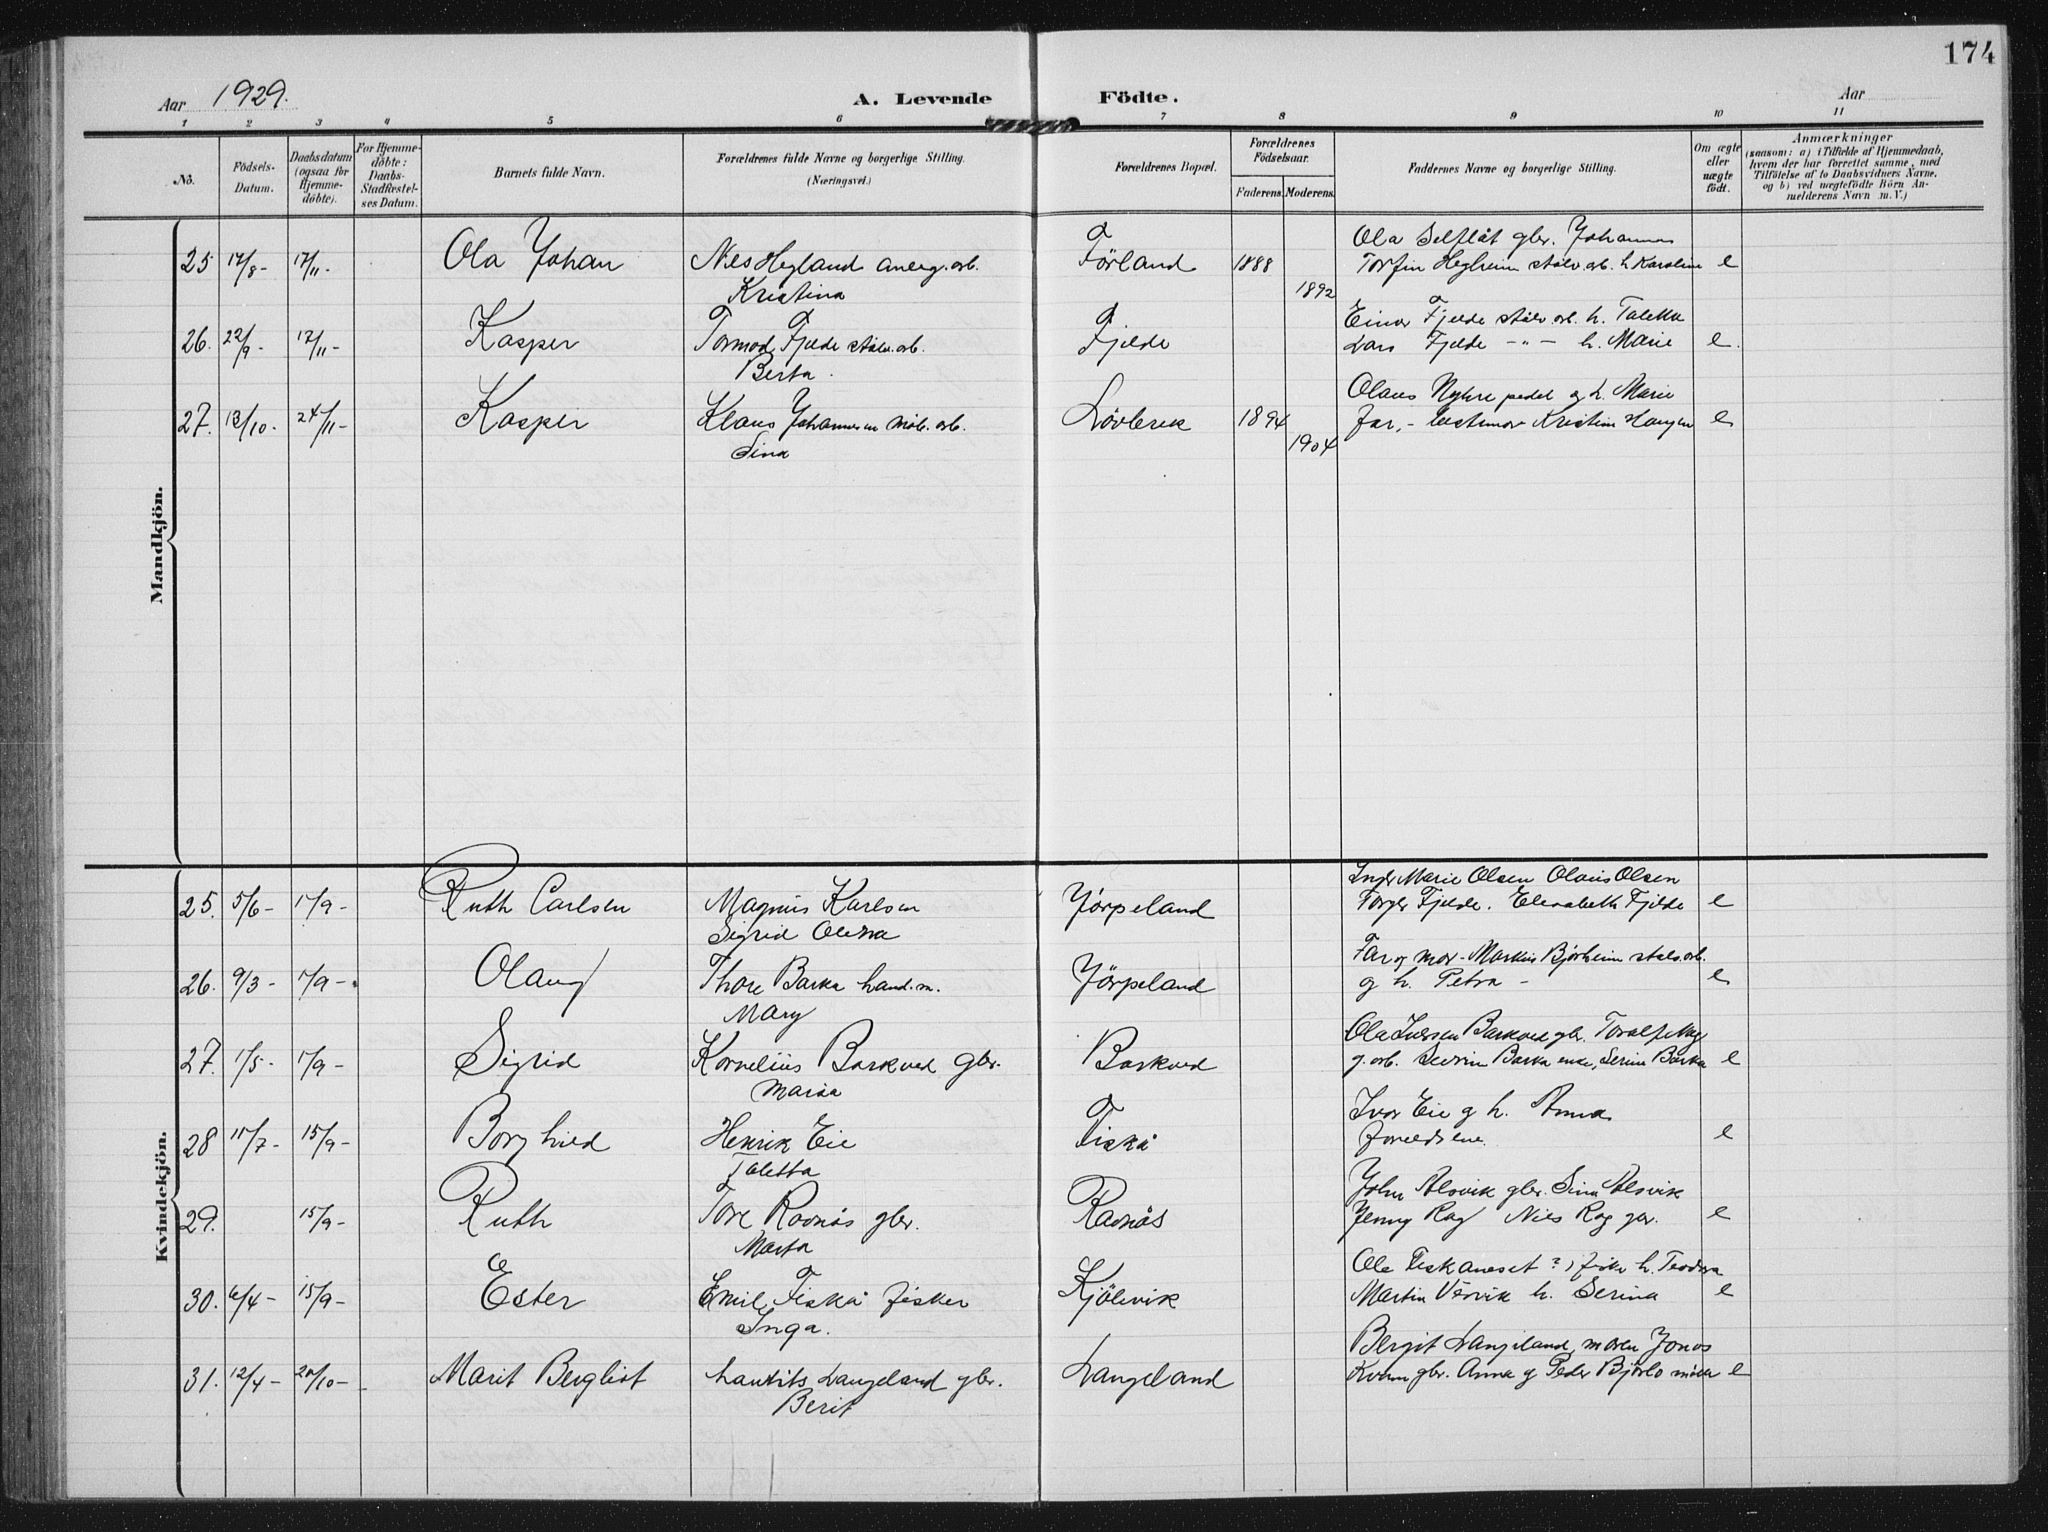 174
Aar 1929.
A. Levende Födte.
Aar
1 2 3 4 5 6 7 8 9 10 11
No.
Födsels-Datum.
Daabsdatum (ogsaa for Hjemme-döbte).
For Hjemme-döbte: Daabs-Stadfæstel-ses Datum.
Barnets fulde Navn.
Forældrenes fulde Navne og borgerlige Stilling.
(Næringsvei.)
Forældrenes Bopæl.
Forældrenes Födselsaar.
Faderens. Moderens.
Faddernes Navne og borgerlige Stilling.
Om ægte eller uægte födt.
Anmærkninger
(saasom: a) i Tilfælde af Hjemmedaab,
hvem der har forrettet samme, med
Tilföielse af to Daabsvidners Navne,
og b) ved uægtefödte Börn An-
melderens Navn m.V.)
Mandkjön.
Ola Selflåt gbr. Johannes
25 17/8- 17/11- Ola Johan Nils Hegland anleg.arb. Förland 1888 Torfin Hegheim stålv.arb. h. Karoline e
Kristina 1892
Einar Fjelde stålv.arb. h. Taletta
26. 22/9- 17/11- Kasper Tormod Fjelde stålv.arb. Fjelde Lars Fjelde -"- h. Marie e.
Berta.
Olaus Nyhre pedel og h. Marie
27. 13/10- 24/11- Kasper Klaus Johannesen møb.arb. Lövbrek 1894 far,- Kristine Haugen e
Sina 1904
Kvindekjön.
Inger Marie Olsen Olavis Olsen
25. 5/6- 1/9- Ruth Carlsen Magnus Karlsen Jörpeland Torger Fjelde. Elisabeth Fjelde e
Sigrid
Far og mor - Markus Bjørheim stålv.arb.
26. 9/3- 1/9- Olaug Thore Barka hand.m. Jörpeland og h. Petra - e
Mary
Ola Iversen Barkved gbr. Toralf
27. 1/5- 1/9- Sigrid Kornelius Barkved gbr. Barkved g.arb. Severin Barka enke, Serine Barka e
Maria
Ivar Eie og h. Anna
28 11/7- 15/9- Borghild Henrik Eie Fiskå foreldrene e
Taletta
John Alsvik gbr. Sina Alsvik
29. 15/9- Ruth Tore Ravnås gbr. Ravnås Jenny Rag Nils Rag gbr. e
Marta
Ole Fiskaneset ?, fisker h. Teodora
30. 6/4- 15/9- Ester Emil Fiskå fisker Kjölevik Martin Vervik h. Serina e
Inga.
Bergit Langeland, moren Jonas
31. 12/4- 20/10- Marit Bergliot Lauritz Langeland gbr. Langeland Kvam gbr. Anna og Peder Bjørlo e
Berit